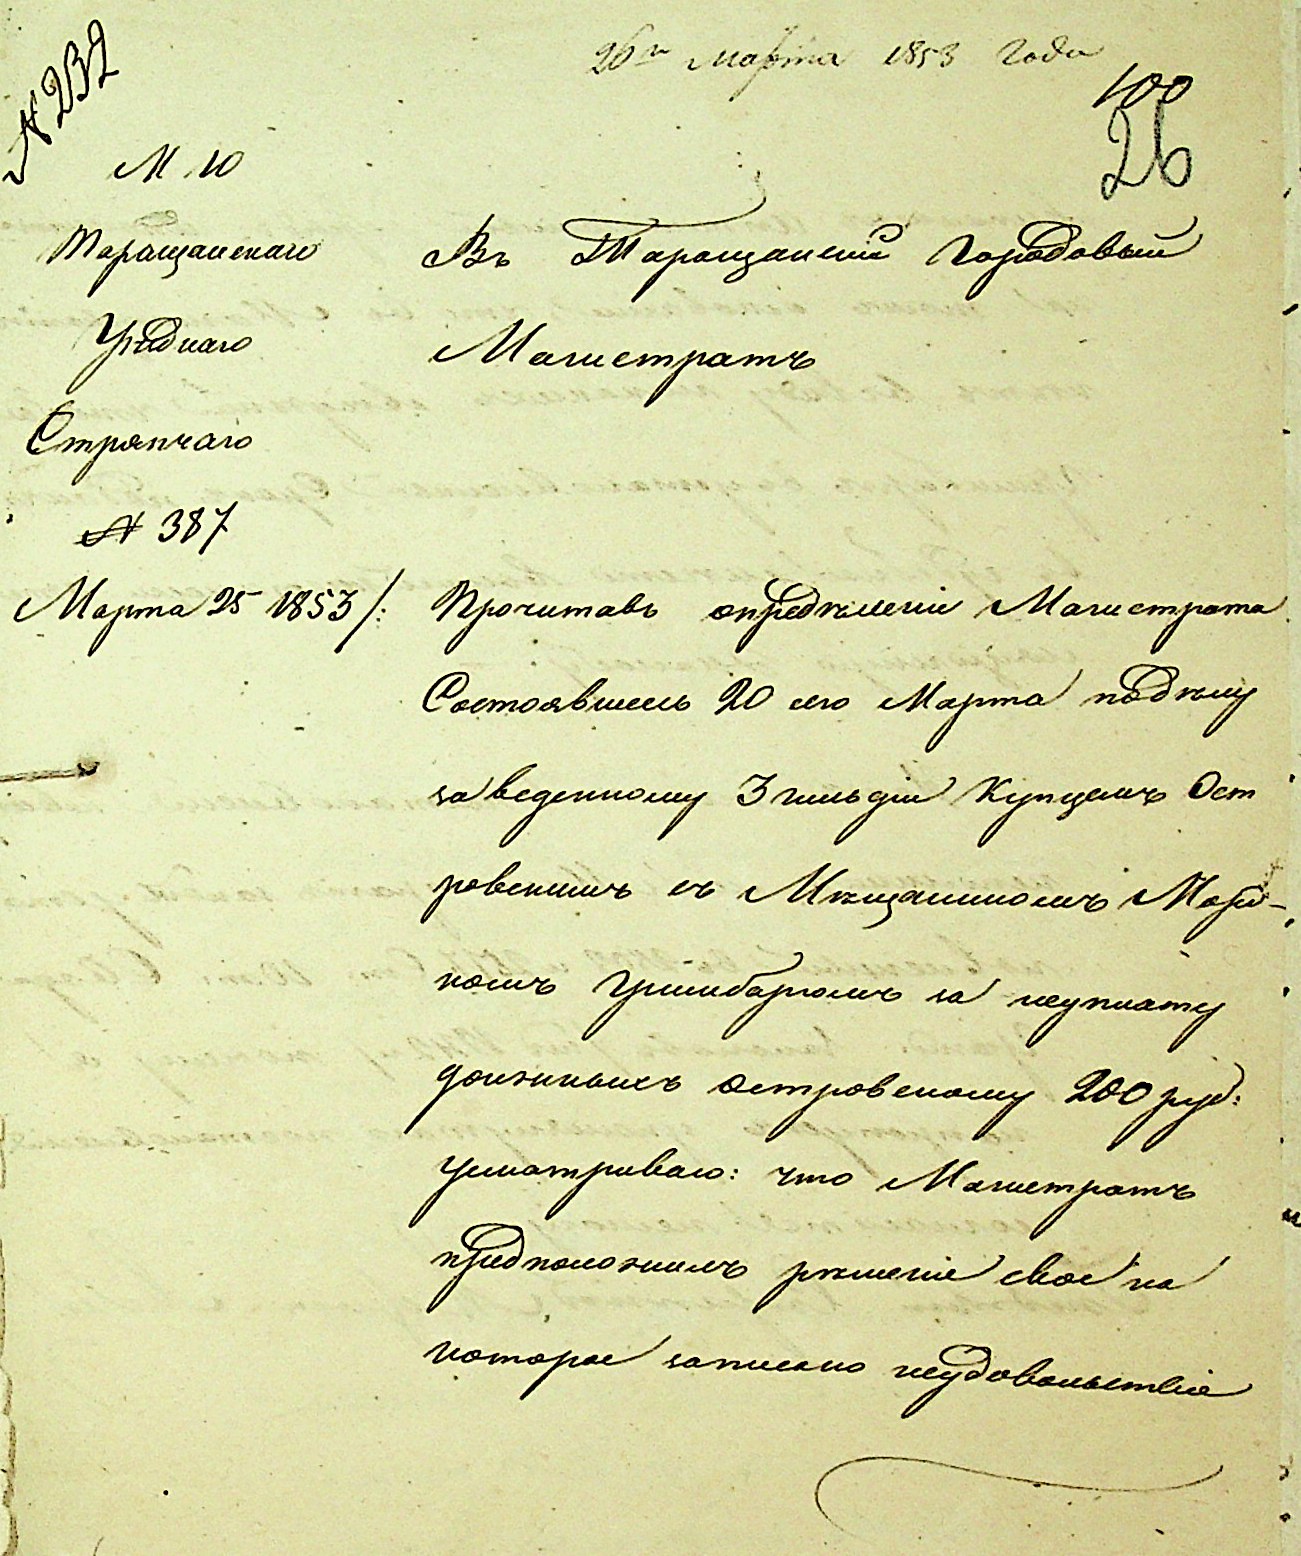 26го Марта 1853 года
№ 232
100
26
М Ю
Таращанскаго
Уѣзднаго
Стряпчаго
№ 387
Марта 25 1853 /:
Въ Таращанскій Городовый
Магистратъ
Прочитавъ опредѣленіе Магистрата
Состоявшеесь 20 сего Марта по дѣлу
заведенному 3 гильдіи Купцемъ Ост
ровскимъ съ Мѣщаниномъ Мор-
комъ Гринбаргомъ за неуплату
должныхъ Островскому 200 руб:
усматриваю: что Магистратъ
предположилъ рѣшеніе свое на
которое записано неудовольствіе